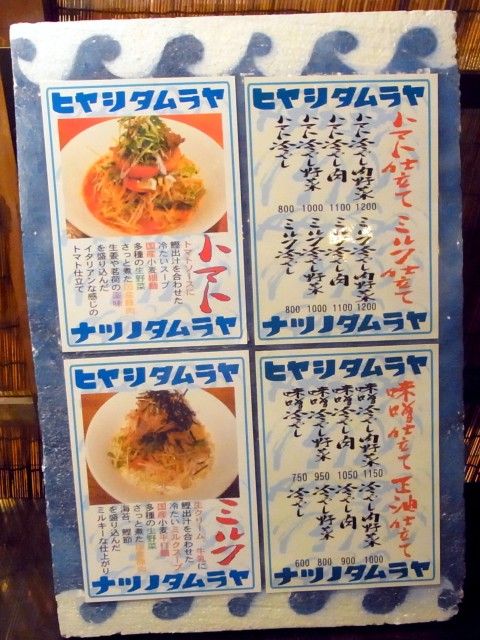 ヒヤシタムラヤ
トマト
トマトソースに
鰹出汁を合わせた
冷たいスープ
国産小麦細麺
多種の生野菜
さっと煮た国産豚肉
生姜や茗荷の薬味
を盛り込んだ
イタリアンな感じの
トマト仕立て
ナツノタムラヤ
ヒヤシタムラヤ
トマト仕立て
トマト冷やし肉野菜
トマト冷やし肉
トマト冷やし野菜
トマト冷やし
800 1000 1100 1200
ミルク仕立て
ミルク冷やし肉野菜
ミルク冷やし肉
ミルク冷やし野菜
ミルク冷やし
800 1000 1100 1200
ナツノタムラヤ
ヒヤシタムラヤ
ミルク
生クリーム、牛乳に
鰹出汁を合わせた
冷たいミルクスープ
国産小麦平打麺
多種の生野菜
さっと煮た国産豚肉
海苔、鰹節
を盛り込んだ
ミルキーな仕上がり
ナツノタムラヤ
ヒヤシタムラヤ
味噌仕立て
味噌冷やし肉野菜
味噌冷やし肉
味噌冷やし野菜
味噌冷やし
750 950 1050 1150
正油仕立て
冷やし肉野菜
冷やし肉
冷やし野菜
冷やし
600 800 900 1000
ナツノタムラヤ